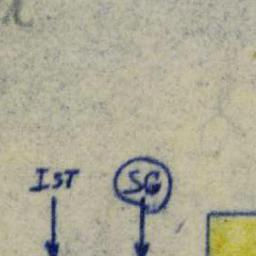 IST SG